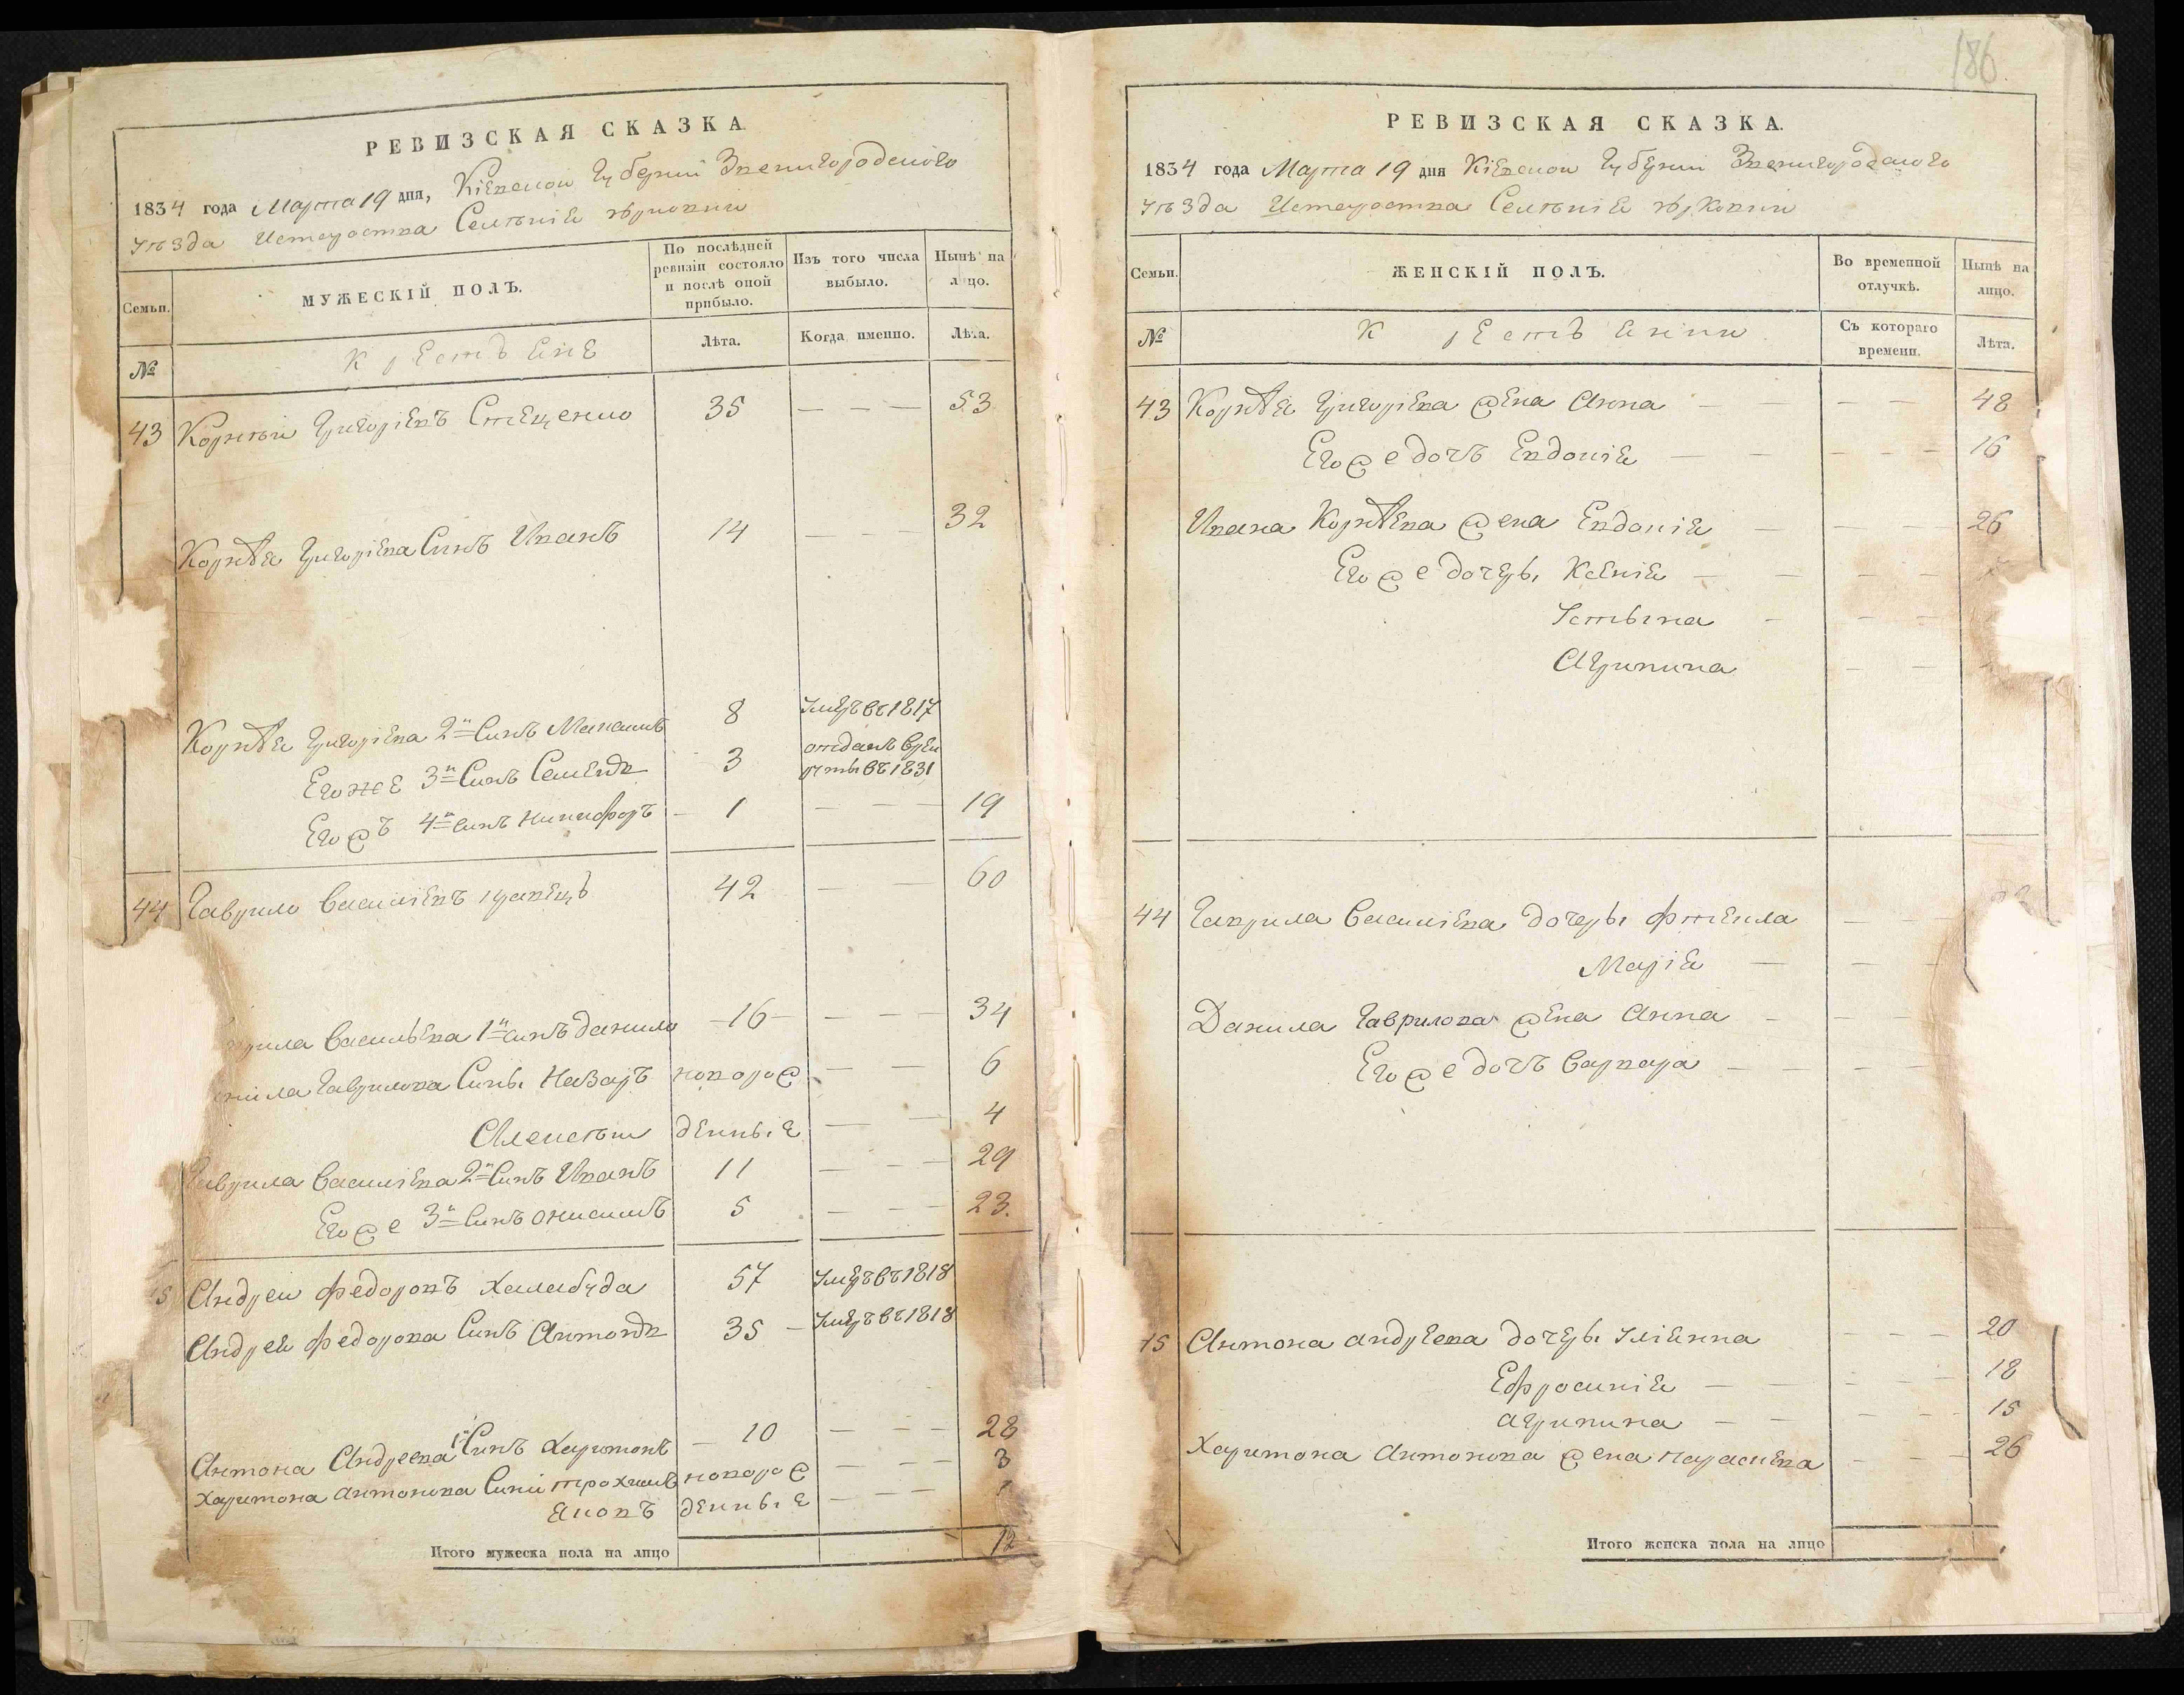 186
РЕВИЗСКАЯ СКАЗКА
1834 года Марта 19 дня, Кіевской Губерніи Звенигородского
уѣзда Староства Селѣнія
Семьи.
МУЖЕСКІЙ ПОЛЪ.
По послѣдней ревизіи состояло и послѣ оной прибыло.
Изъ того числа выбыло.
Нынѣ на лицо.
№
Крестьяне
Лѣта.
Когда именно.
Лѣта.
43 Корнѣй Григоріевъ Стеценко 35 — — — 53
Корнѣя Григоріева Синъ Иванъ 14 — — — 32
Корнѣя Григоріева 2й Синъ Максимъ 8 умеръ въ 1817
Егоже 3й Синъ Семенъ 3 отданъ в рекруты въ 1831
Егожъ 4й синъ Никифоръ — 1 — — — 19
44 Гаврило Василіевъ Кравецъ 42 — — 60
Василіева 1й синъ данило — 16 — — — — 34
Гаврилова Сины Назаръ новорож — — 6
Алексѣй денные — — 4
Гаврила Василіева 2й Синъ Иванъ 11 — — — 29
Егоже 3й Синъ онисимъ 5 — — — 23.
5 Андрей Федоровъ Халабуда 57 умеръ въ 1818
Андрея Федорова Синъ Антонъ 35 — умеръ въ 1818
Антона Андреева 1й Синъ Харитонъ — 10 — — — 28
Харитона Антонова Сини трохимъ новорож — — — 3
Яковъ денные — — —
Итого мужеска пола на лицо 12
РЕВИЗСКАЯ СКАЗКА.
1834 года Марта 19 дня Кіевской Губерніи Звенигородского
уѣзда Староства Селѣнія
Семьи.
ЖЕНСКІЙ ПОЛЪ.
Во временной отлучкѣ.
Нынѣ на лицо.
№
Крестьянки
Съ котораго времени.
Лѣта.
43 Корнѣя Григоріева жена Анна — — — — 48
Егоже дочъ Евдокія — — — — — 16
Ивана Корнѣева жена Евдокія — — — 26
Егоже дочеры Ксенія — — — —
Устына — — —
Агрипина — —
44 Гаврила Василіева дочеры Фтекла —
Марія — — —
Данила Гаврилова жена Анна — — —
Егоже дочъ Варвара — — — — —
45 Антона андреева дочеры Уліянна — — — 20
Ефросинія — — — — 18
агрипина — — — — 15
Харитона Антонова жена параскева — — — 26
Итого женска пола на лицо